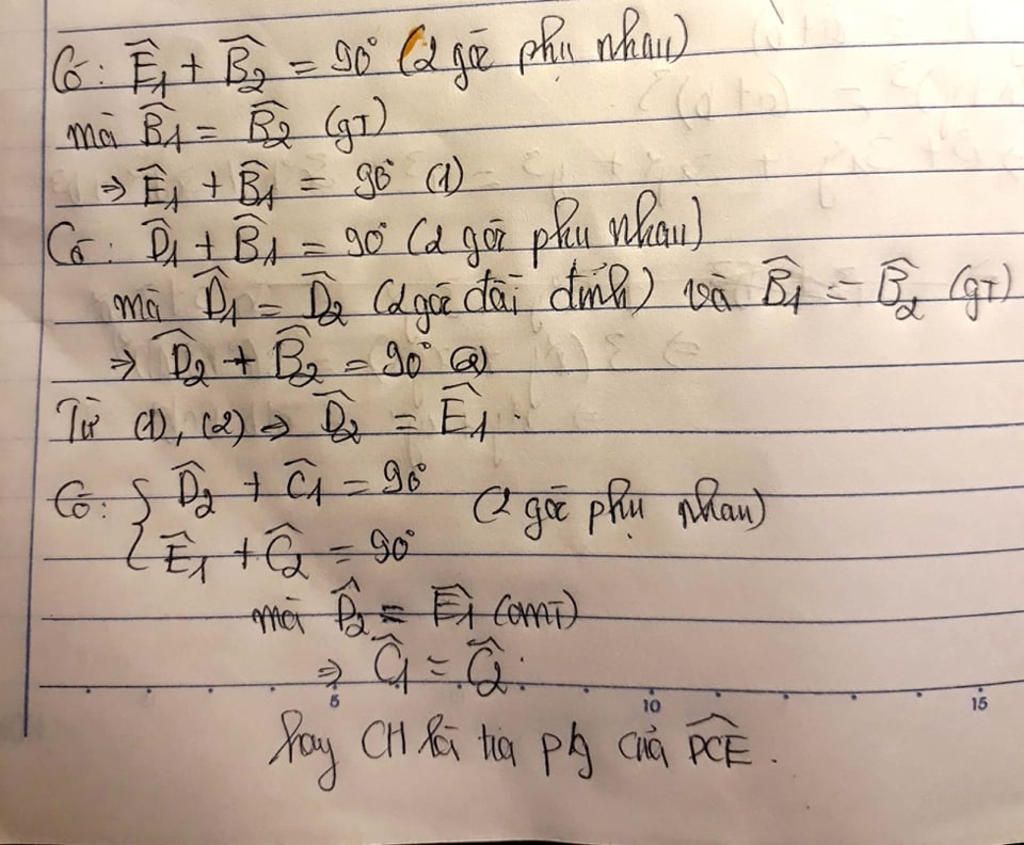 Có: Ê1 + B̂2 = 90° (2 góc phụ nhau)
mà B̂1 = B̂2 (gT)
⇒ Ê1 + B̂1 = 90° (1)
Có: D̂1 + B̂1 = 90° (2 góc phụ nhau)
mà D̂1 = D̂2 (2 góc đối đỉnh) và B̂1 = B̂2 (gT)
⇒ D̂2 + B̂2 = 90° (2)
Từ (1), (2) ⇒ D̂2 = Ê1.
Có: { D̂2 + Ĉ1 = 90°
Ê1 + Ĉ2 = 90° (2 góc phụ nhau)
mà D̂2 = Ê1 (cmT)
⇒ Ĉ1 = Ĉ2.
5 10 15
hay CH là tia pg của D̂CE.